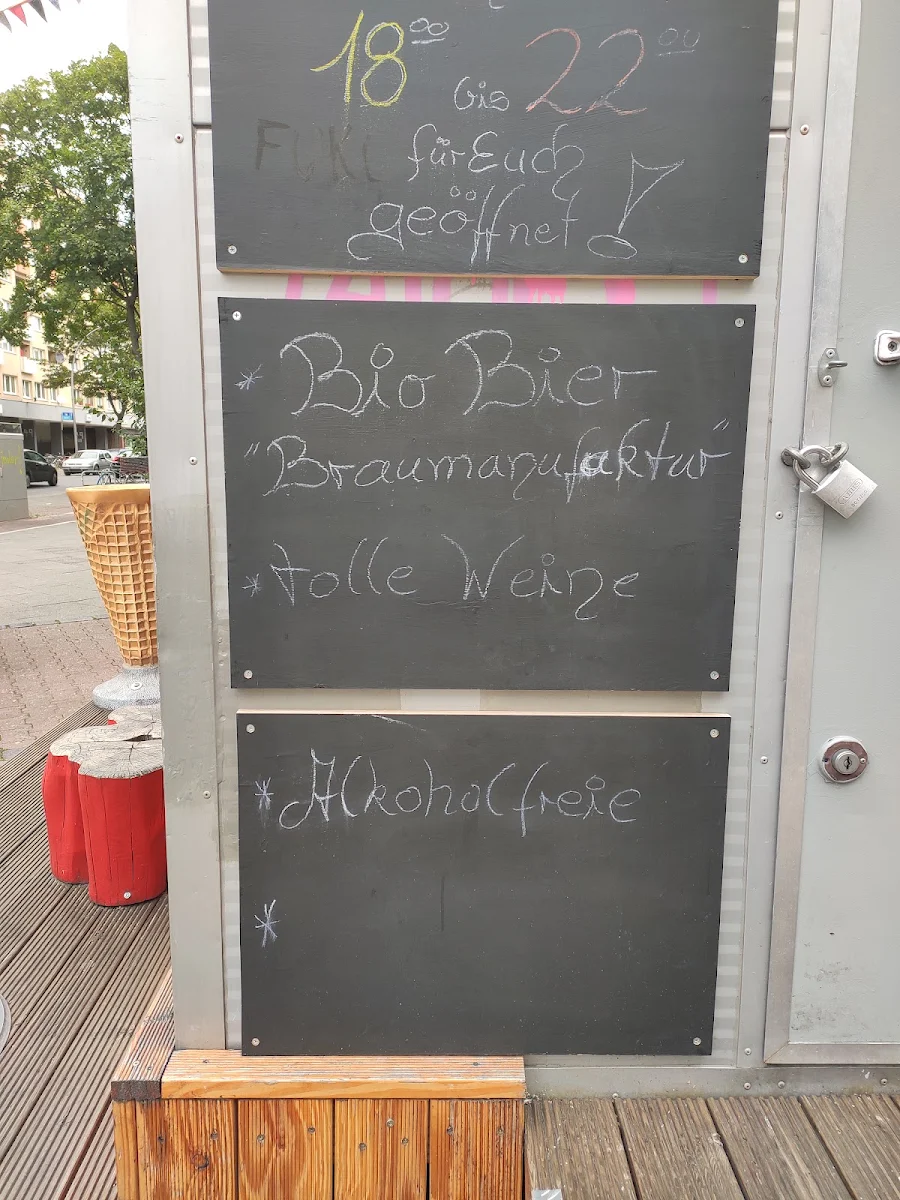 18⁰⁰ bis 22⁰⁰
für Euch
geöffnet!
* Bio Bier
"Braumanufaktur"
* tolle Weine
* Alkoholfreie
*